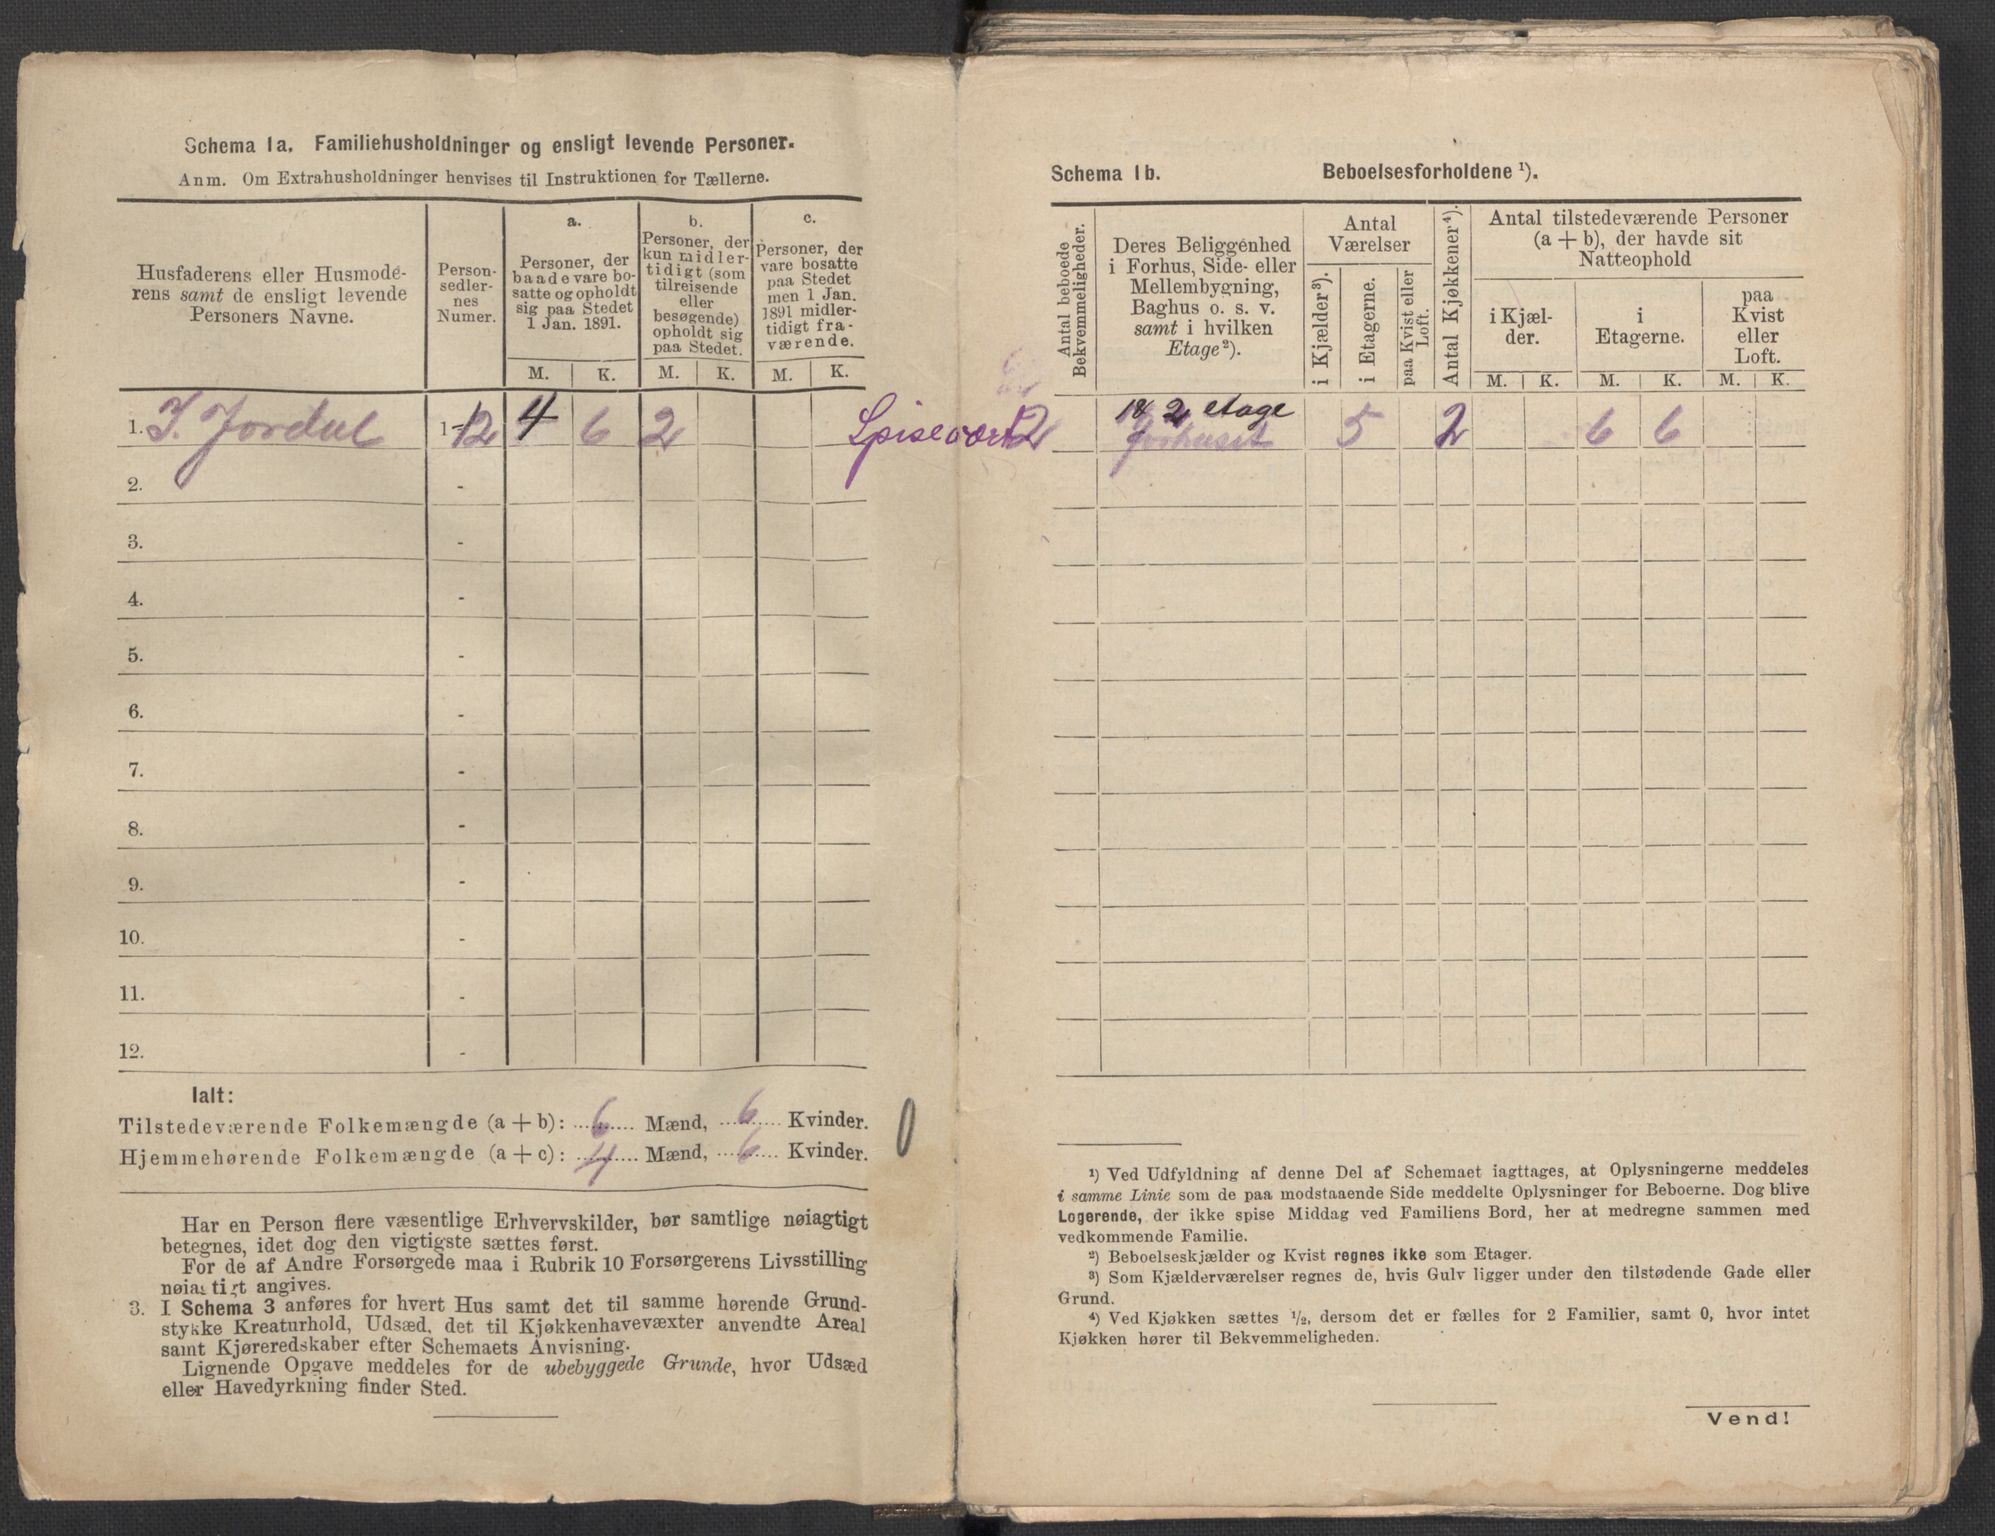 Schema 1a. Familiehusholdninger og ensligt levende Personer.
Anm. Om Extrahusholdninger henvises til Instruktionen for Tællerne.
Husfaderens eller Husmode-
rens samt de ensligt levende
Personers Navne.
Person-
sedler-
nes
Numer.
a.
Personer, der
baade vare bo-
satte og opholdt
sig paa Stedet
1 Jan. 1891.
b.
Personer, der
kun midler-
tidigt (som
tilreisende
eller
besøgende)
opholdt sig
paa Stedet.
c.
Personer, der
vare bosatte
paa Stedet
men 1 Jan.
1891 midler-
tidigt fra-
værende.
M. K. M. K. M. K.
1. J. Jordal 1-12 4 6 2
2. -
3. -
4. -
5. -
6. -
7. -
8. -
9. -
10. -
11. -
12. -
Ialt:
Tilstedeværende Folkemængde (a + b): 6 Mænd, 6 Kvinder.
Hjemmehørende Folkemængde (a + c): 4 Mænd, 6 Kvinder.
0
Har en Person flere væsentlige Erhvervskilder, bør samtlige nøiagtigt
betegnes, idet dog den vigtigste sættes først.
For de af Andre Forsørgede maa i Rubrik 10 Forsørgerens Livsstilling
nøiagtigt angives.
3. I Schema 3 anføres for hvert Hus samt det til samme hørende Grund-
stykke Kreaturhold, Udsæd, det til Kjøkkenhavevæxter anvendte Areal
samt Kjøreredskaber efter Schemaets Anvisning.
Lignende Opgave meddeles for de ubebyggede Grunde, hvor Udsæd
eller Havedyrkning finder Sted.
Schema 1b. Beboelsesforholdene ¹).
Antal beboede
Bekvemmeligheder.
Deres Beliggenhed
i Forhus, Side- eller
Mellembygning,
Baghus o. s. v.
samt i hvilken
Etage ²).
Antal
Værelser
i Kjælder ³).
i Etagerne.
paa Kvist eller
Loft.
Antal Kjøkkener ⁴).
Antal tilstedeværende Personer
(a + b), der havde sit
Natteophold
i Kjæl-
der.
i
Etagerne.
paa
Kvist
eller
Loft.
M. K. M. K. M. K.
Spisevært 2 1 & 2 etage
Forhuset 5 2 6 6
¹) Ved Udfyldning af denne Del af Schemaet iagttages, at Oplysningerne meddeles
i samme Linie som de paa modstaaende Side meddelte Oplysninger for Beboerne. Dog blive
Logerende, der ikke spise Middag ved Familiens Bord, her at medregne sammen med
vedkommende Familie.
²) Beboelseskjælder og Kvist regnes ikke som Etager.
³) Som Kjælderværelser regnes de, hvis Gulv ligger under den tilstødende Gade eller
Grund.
⁴) Ved Kjøkken sættes ½, dersom det er fælles for 2 Familier, samt 0, hvor intet
Kjøkken hører til Bekvemmeligheden.
Vend!